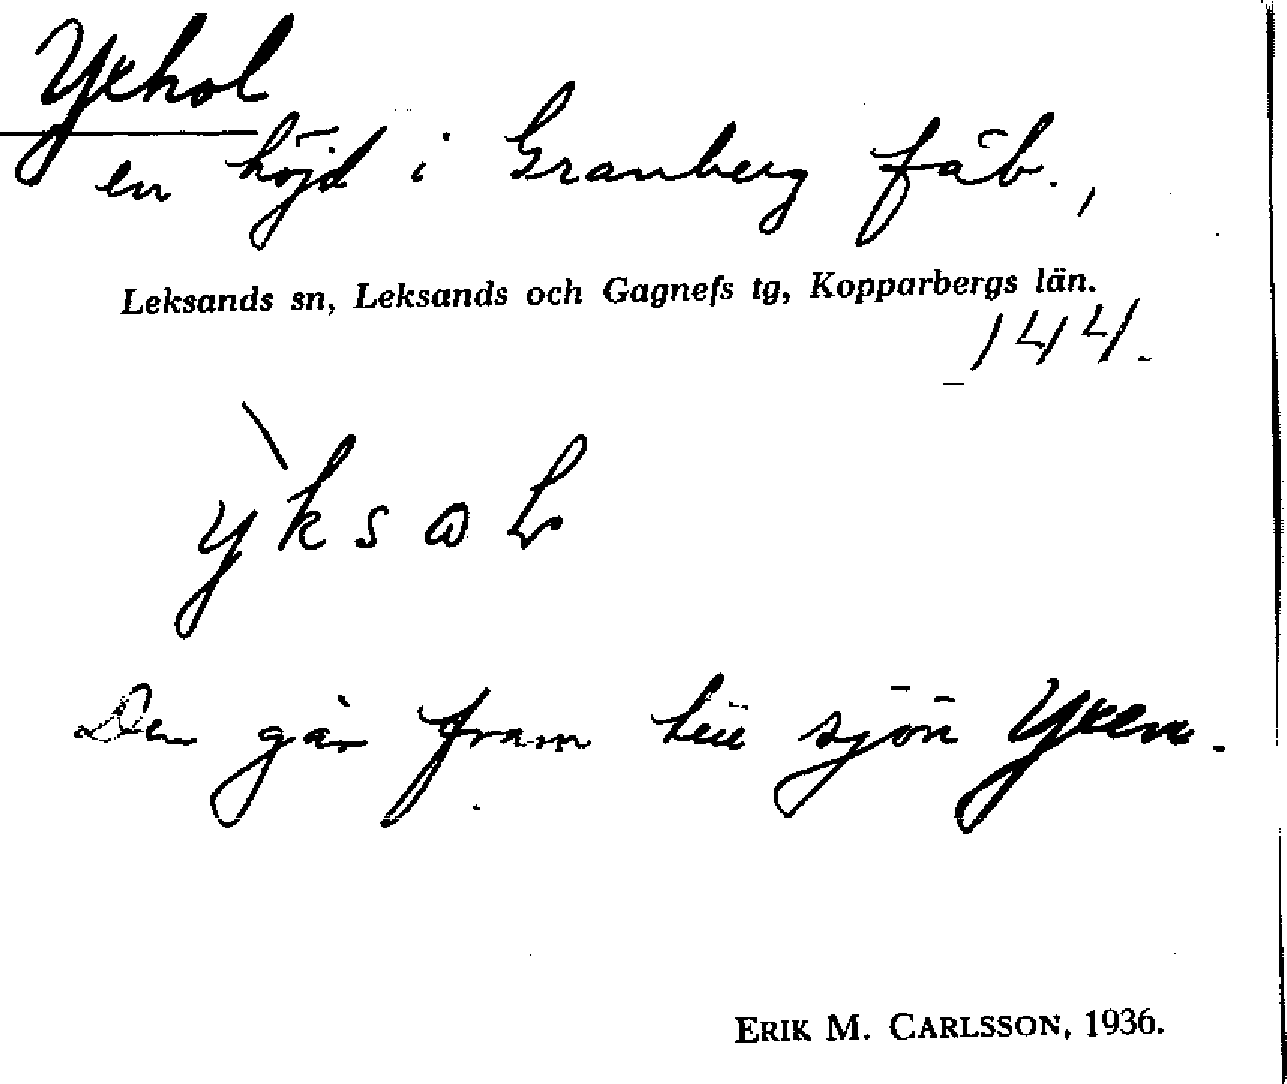 Yxhol
en höjd i Granberg fäb.,
Leksands sn, Leksands och Gagnefs tg, Kopparbergs län.
144.
Den går fram till sjön Yxen.
ERIK M. CARLSSON, 1936.